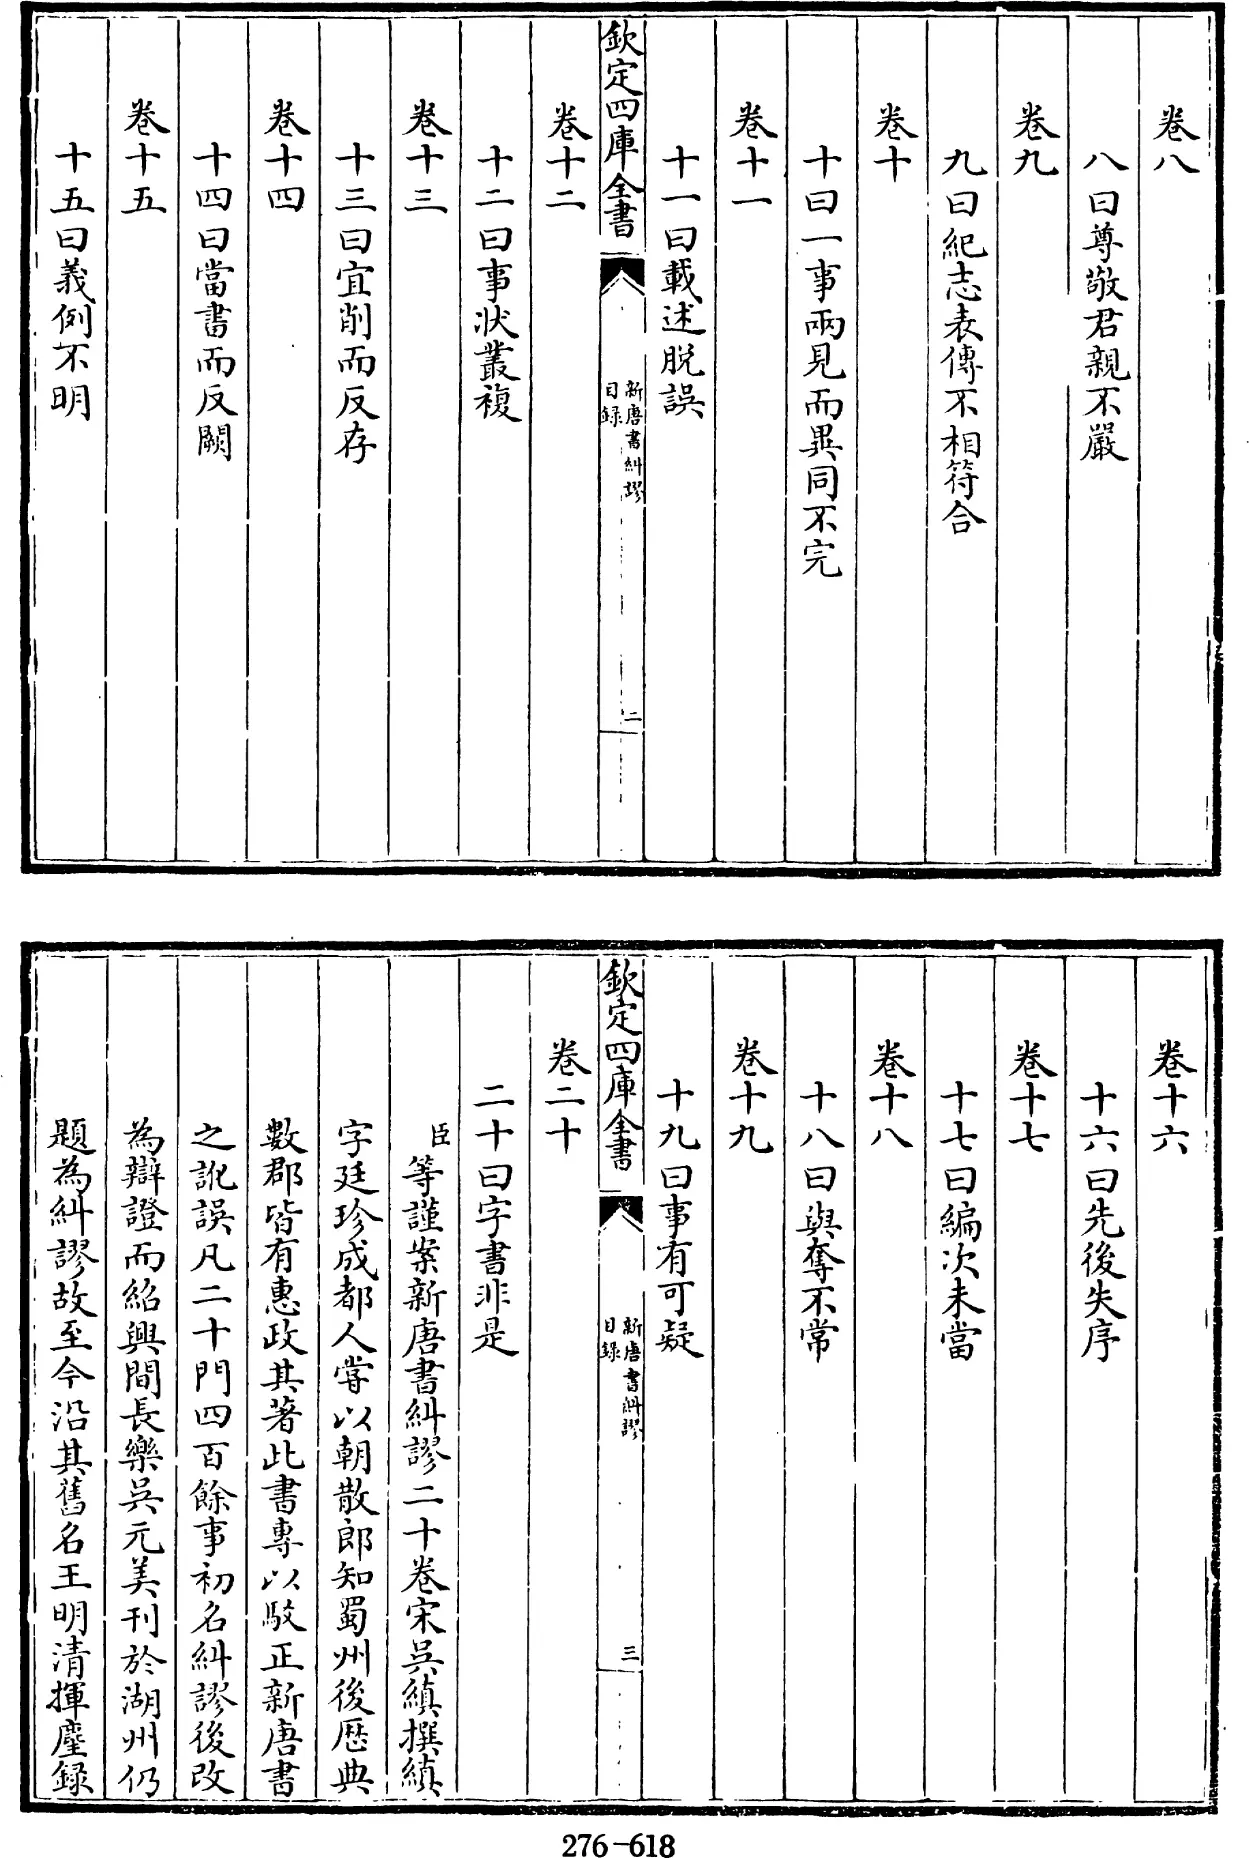 卷八
八曰尊敬君親不嚴
卷九
九曰紀志表傳不相符合
卷十
十曰一事兩見而異同不完
卷十一
十一曰載述脱誤
欽定四庫全書
新唐書糾謬
目録
二
卷十二
十二曰事狀叢複
卷十三
十三曰宜削而反存
卷十四
十四曰當書而反闕
卷十五
十五曰義例不明
卷十六
十六曰先後失序
卷十七
十七曰編次未當
卷十八
十八曰與奪不常
卷十九
十九曰事有可疑
欽定四庫全書
新唐書糾謬
目録
三
卷二十
二十曰字書非是
臣等謹案新唐書糾謬二十卷宋吳縝撰縝
字廷珍成都人嘗以朝散郎知蜀州後歴典
數郡皆有惠政其著此書專以駮正新唐書
之訛誤凡二十門四百餘事初名糾謬後改
為辯證而紹興間長樂吳元美刊於湖州仍
題為糾謬故至今沿其舊名王明清揮麈録
276-618